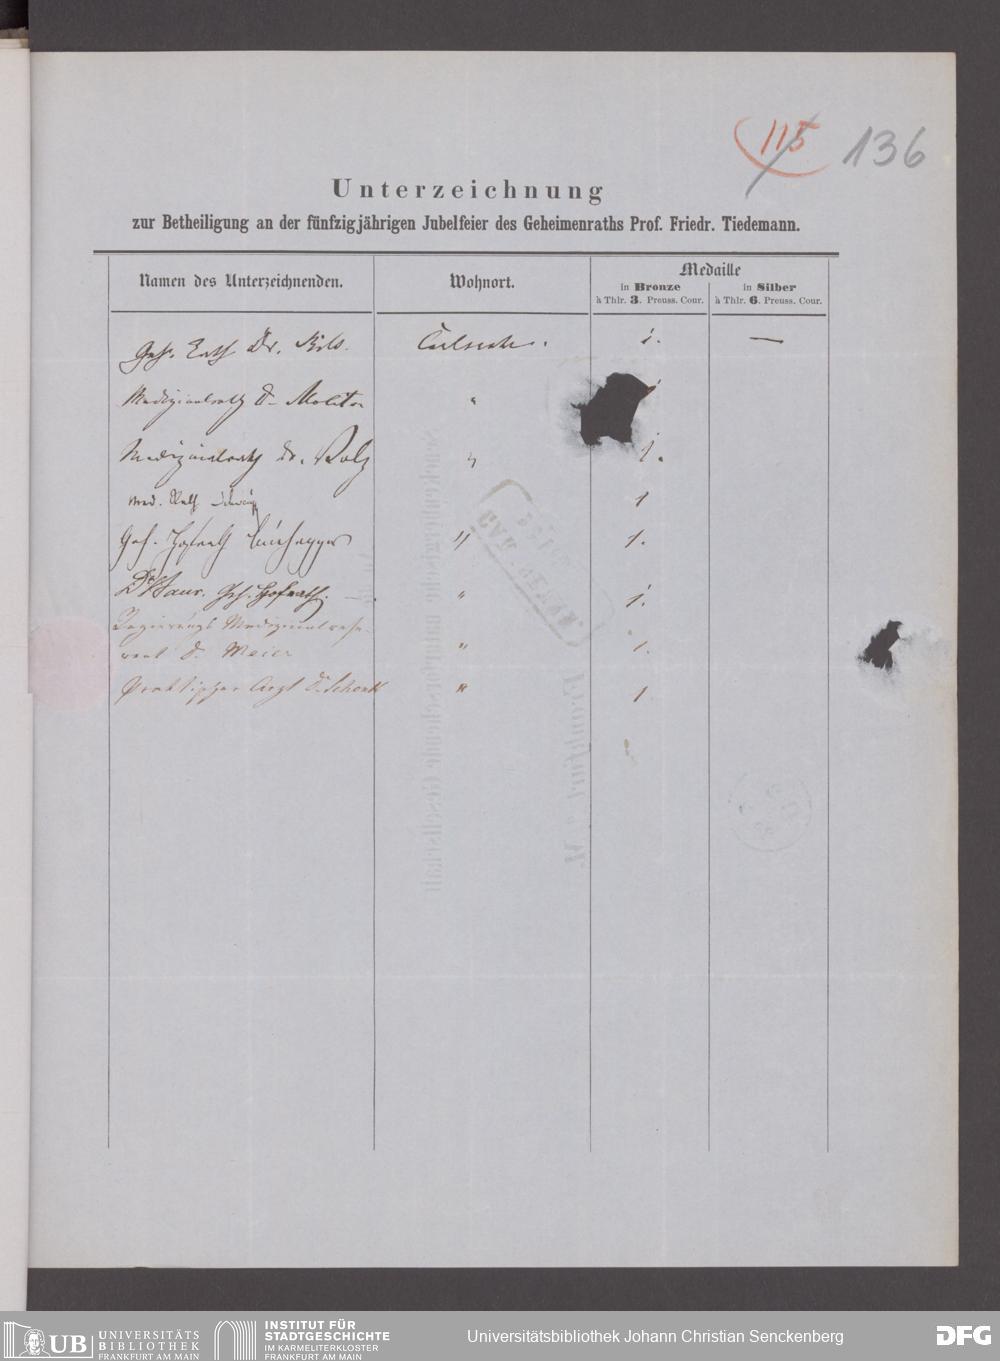 115 136
Unterzeichnung
zur Betheiligung an der fünfzigjährigen Jubelfeier des Geheimenraths Prof. Friedr. Tiedemann.
Namen des Unterzeichnenden. Wohnort. Medaille
in Bronze in Silber
à Thlr. 3. Preuss. Cour. à Thlr. 6. Preuss. Cour.
Geh. Rath Dr. 1. —
Medizinalrath Dr Molitor " 1
Medizinalrath Dr. Volz " 1.
Med. Rath 1
Geh. Hofrath " 1.
Dr. Geh. Hofrath. " 1.
Regierungs Medizinalrefe-
rent Dr. Meier " 1.
praktischer Arzt Dr. Schenk " 1
Senckenbergische naturforschende Gesellschaft
Frankfurt a. M.
UB UNIVERSITÄTS
BIBLIOTHEK
FRANKFURT AM MAIN
INSTITUT FÜR
STADTGESCHICHTE
IM KARMELITERKLOSTER
FRANKFURT AM MAIN
Universitätsbibliothek Johann Christian Senckenberg
DFG